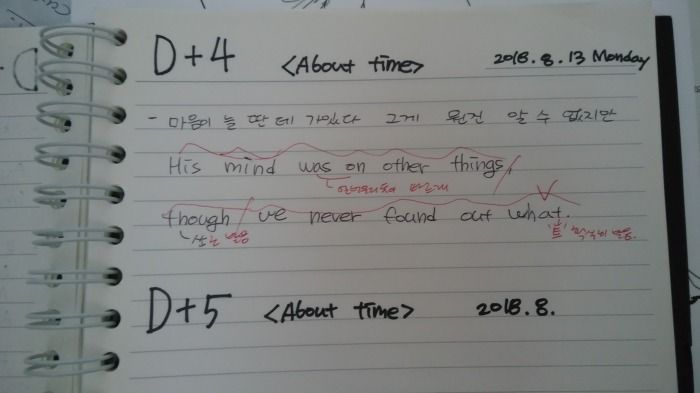 D+4 <About time> 2018. 8. 13 Monday
- 마음이 늘 딴 데 가있다 그게 뭔건 알 수 없지만
His mind was on other things,
빠르게
though 've never found out what.
D+5 <About time> 2018. 8.